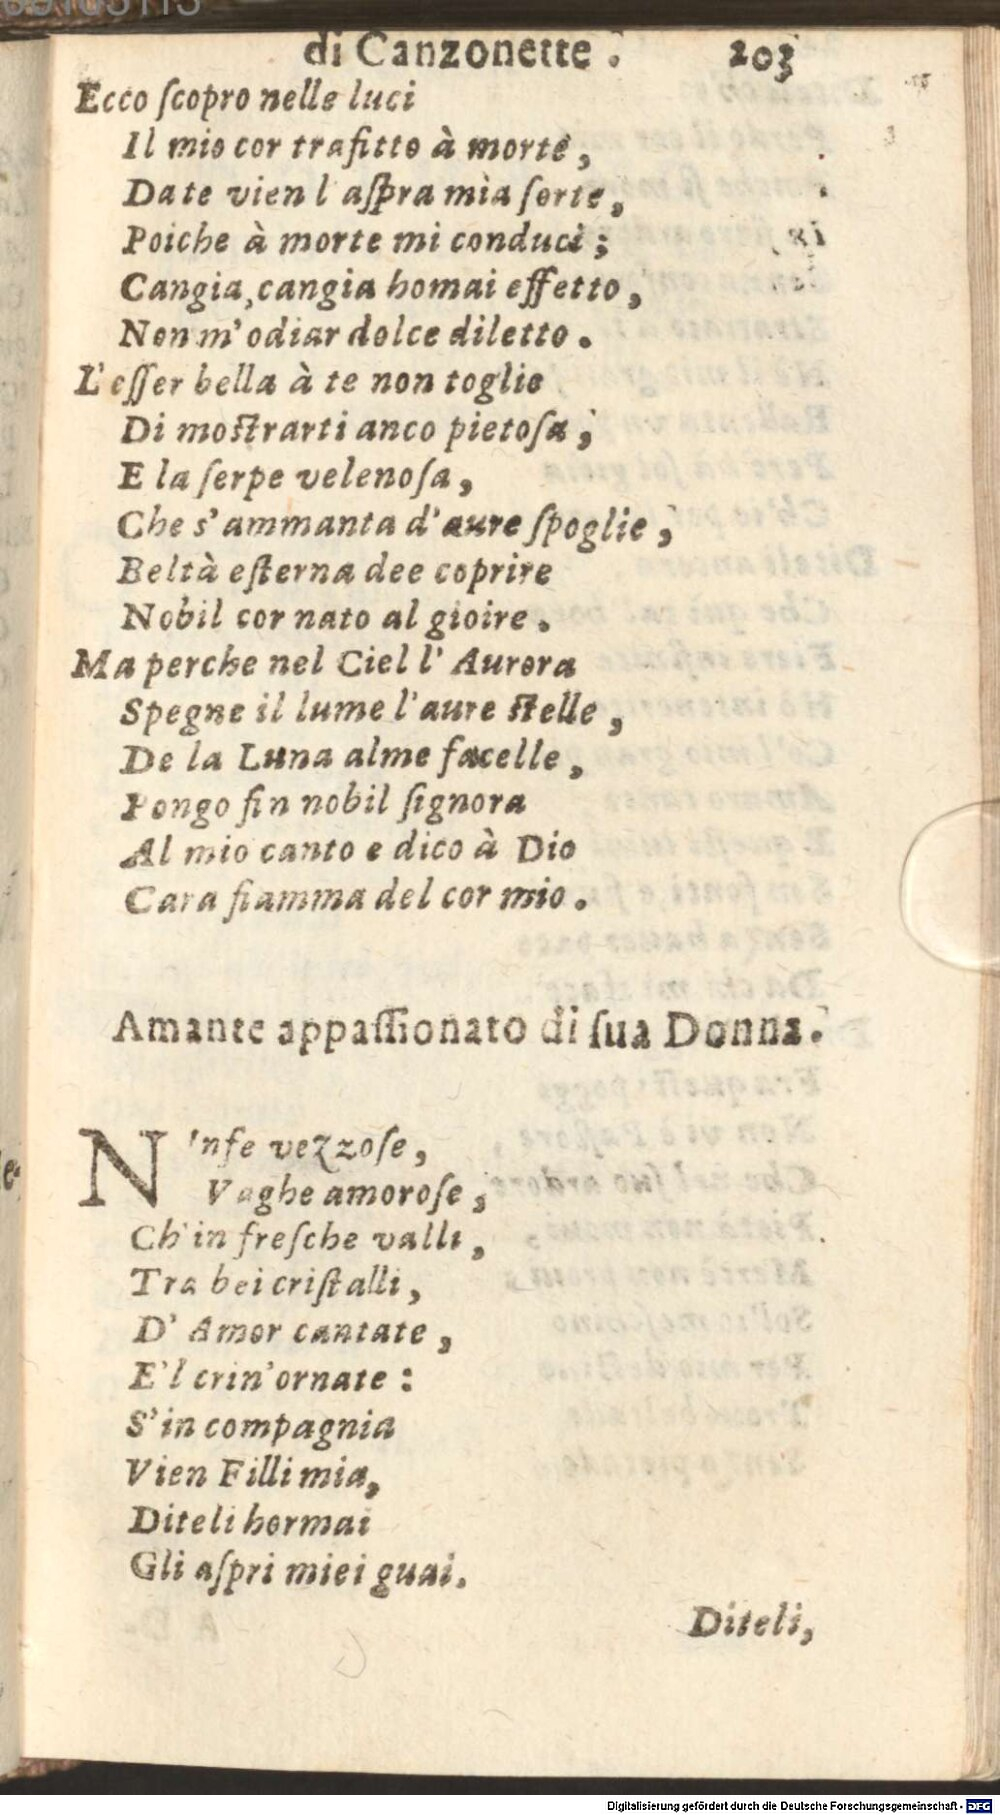 di Canzonette. 203
Ecco ſcopro nelle luci
Il mio cor trafitto à morte,
Da te vien l aſpra mia ſorte,
Poiche à morte mi conduci;
Cangia, cangia homai effetto,
Non m'odiar dolce diletto.
L'eſſer bella à te non toglie
Di moſtrarti anco pietoſa,
E la ſerpe velenoſa,
Che s'ammanta d'aure ſpoglie,
Beltà eſterna dee coprire
Nobil cor nato al gioire.
Ma perche nel Ciel l'Aurora
Spegne il lume l'aure ſtelle,
De la Luna alme facelle,
Pongo fin nobil ſignora
Al mio canto e dico à Dio
Cara fiamma del cor mio.
Amante appaſſionato di ſua Donna.
Ninfe vezzoſe,
Vaghe amoroſe,
Ch'in freſche valli,
Tra bei criſtalli,
D'Amor cantate,
E'l crin'ornate:
S'in compagnia
Vien Filli mia,
Diteli hormai
Gli aſpri miei guai.
Diteli,
Digitalisierung gefördert durch die Deutsche Forschungsgemeinschaft - DFG